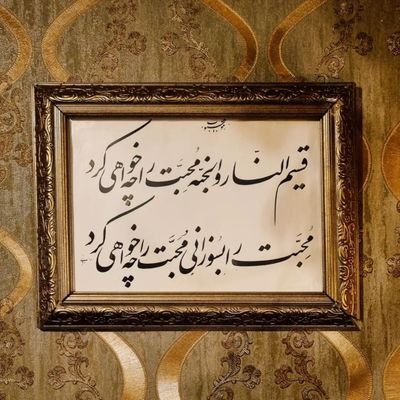 قسیم النّار والجنّه مُحبّت را چه خواهی کرد
مُحبّت را بسُوزانی مُحبّت را چه خواهی کرد